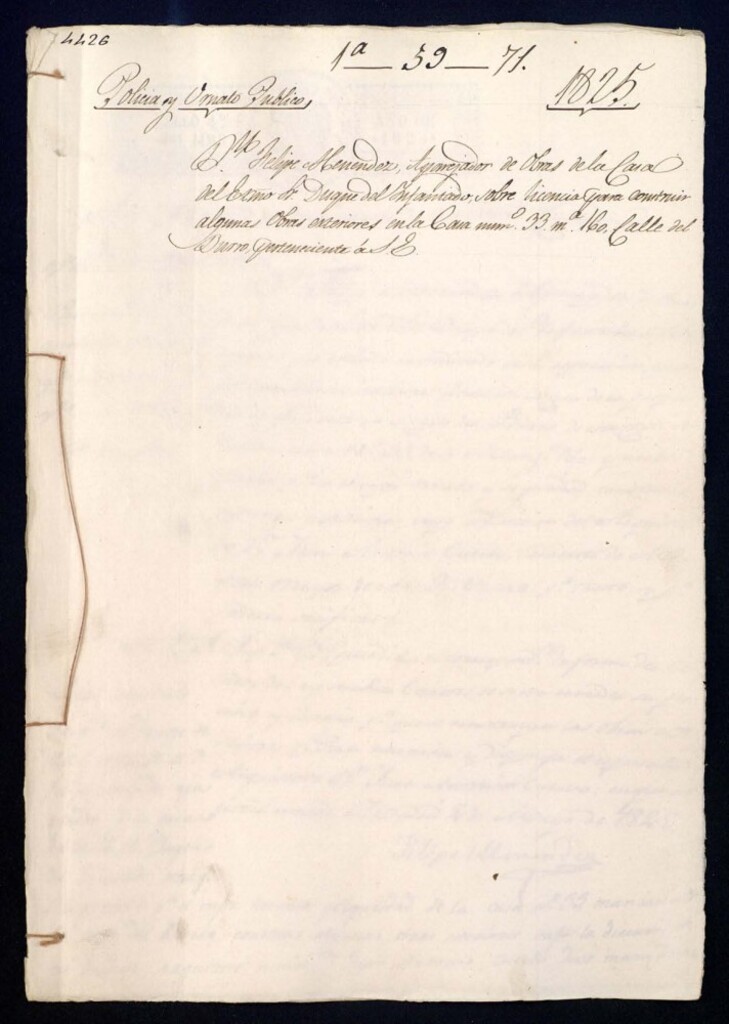 4426
1ª — 59 — 71.
Policia y Ornato Publico,
1825.
D.ⁿ Felipe Menendez, Aparejador de Obras de la Casa
del Exmo Sr. Duque del Infantado, sobre licencia para construir
algunas Obras exteriores en la Casa num.º 33. m.ª 160, Calle del
Burro, perteneciente á S. E.